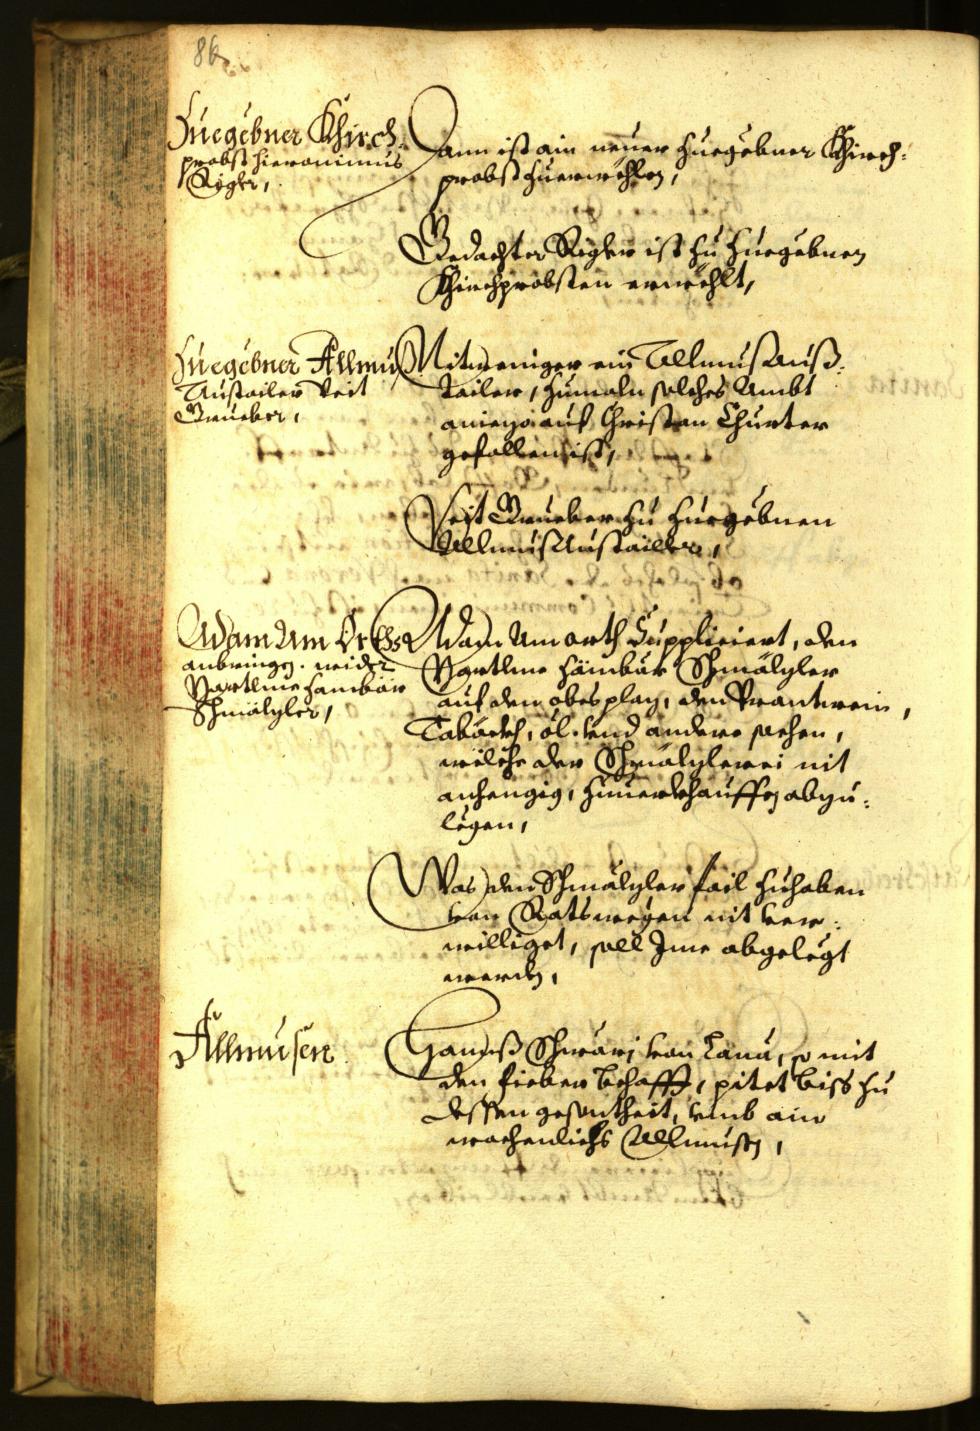 86
Zuegebner Khirch-
probst Hieronimus
Rigler,
Dann ist ain neuer Zuegebner Khirch-
probst zuerwöhlen,
Gedachter Rigler ist zu Zuegebnen
Khirchprobsten erwöhlt,
Zuegebner Allmus
Austailer Veit
Grueber,
Nit weniger ein Allmus Auß-
tailer, zumaln solches Ambt
aniezo auf Christan Churter
gefallen ist,
Veit Grueber zu Zuegebnen
Allmus Austailer,
Adam Am Orth
anbringen wider
Bartlme Hambar
Schmälzler,
Adam Am orth Suppliciert, den
Bartlme Hämbar Schmälzler
auf den obesplaz, den Prantwein,
Taback, öl und andere sachen,
wölche der Schmälzlerei nit
anhengig, zuuerkhauffen abzu-
legen,
Was den Schmälzler fail zuhaben
von Rats wegen nit ver-
williget, soll Ime abgelegt
werden,
Allmusen
Hannß Schwarz von Lana, so mit
den fieber behafft, pitet biss zu
dessen gesontheit, umb ain
wochenlichs Allmusen,